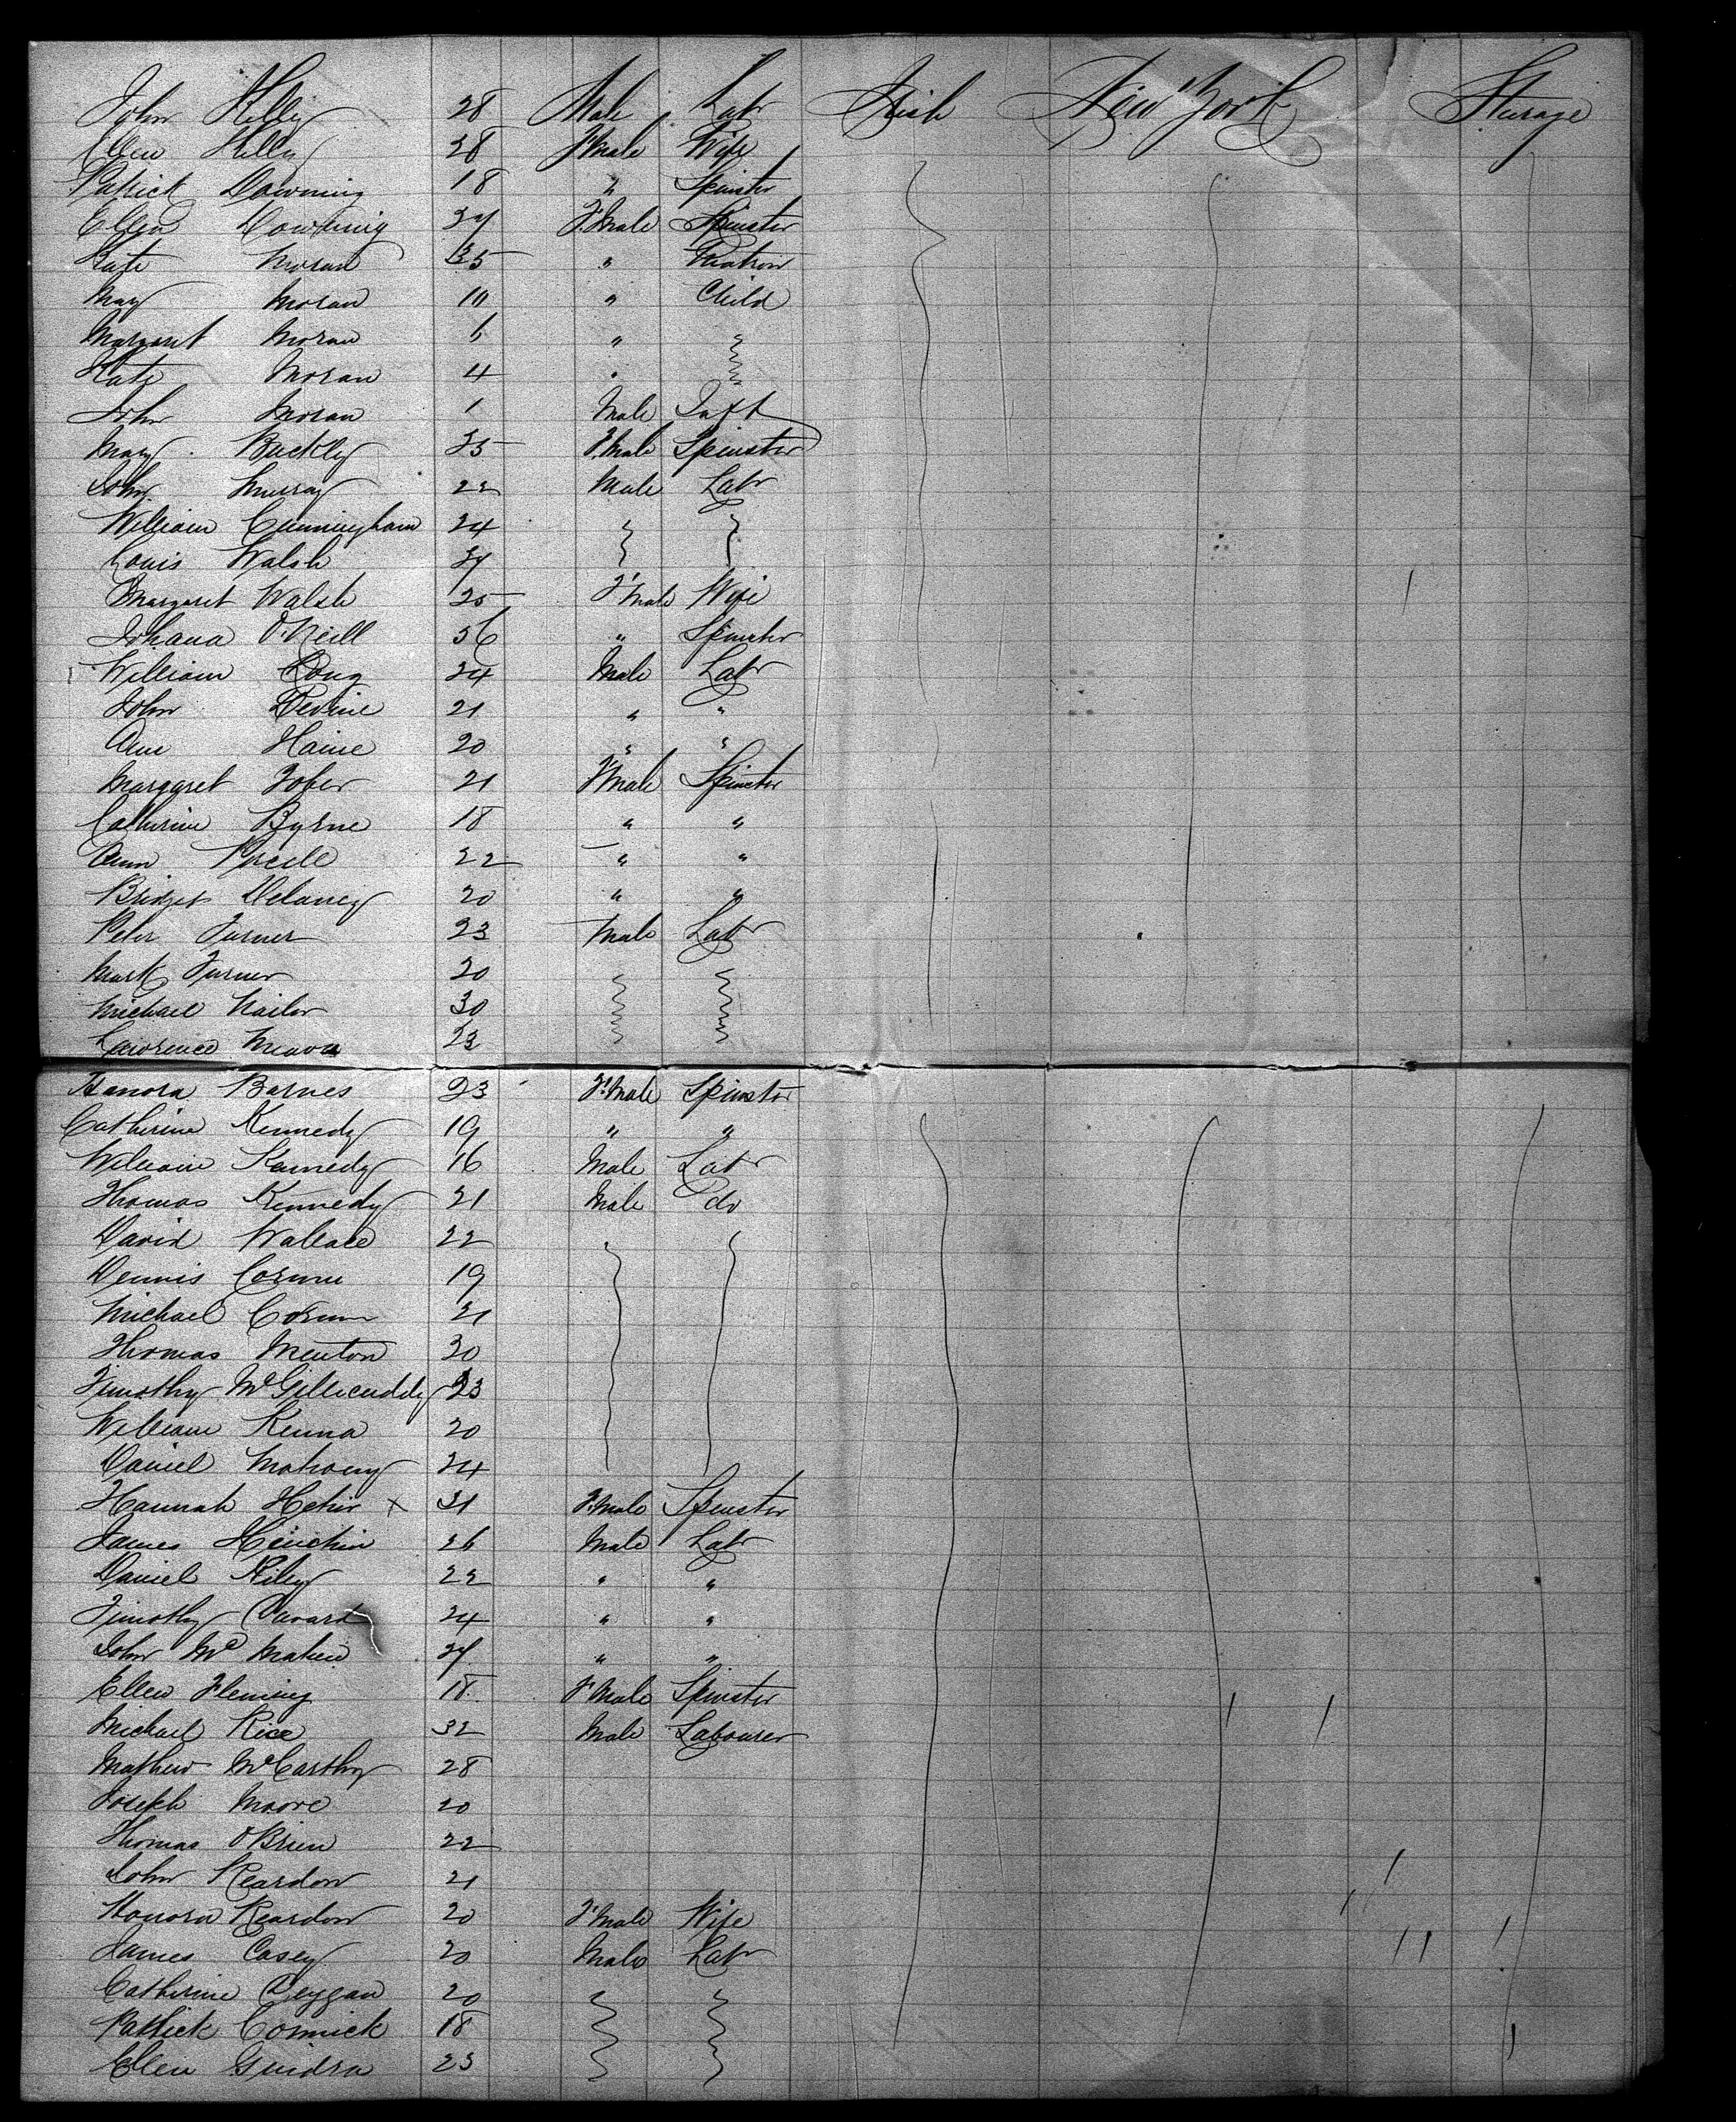 John Kelly 28 Male Labr Irish New York Sturage
Ellen Kelly 28 F'male Wife
Patrick Downing 18 " Spinster
Ellen Downing 27 F'male Spinster
Kate Moran 35 " Matron
May Moran 10 " Child
Margaret Moran 6 "
Kate Moran 4 "
John Moran 1 Male Inft
Mary Buckley 25 F'male Spinster
John Murray 22 Male Labr
William Cunningham 24
Louis Walsh 27
Margaret Walsh 25 F'male Wife
Johana O'Neill 56 " Spinster
William Long 24 Male Labr
John Devine 21 " "
Ann Haine 20 " "
Margaret Tober 21 F'male Spinster
Catherine Byrne 18 " "
Ann 22 " "
Bridget Delaney 20 " "
Peter Turner 23 Male Labr
Mark Turner 20
Michael Nailor 30
Lawrence Meara 23
Hanora Barnes 23 F'male Spinster
Catherine Kennedy 19 " "
William Kennedy 16 Male Labr
Thomas Kennedy 21 Male do
David Wallace 22
Dennis 19
Michael 21
Thomas Menton 30
Timothy McGillicuddy 23
William Kenna 20
Daniel Mahony 24
Hannah Hehir x 31 F'male Spinster
James Hinchin 26 Male Labr
Daniel Riley 22 " "
Timothy 24 " "
John Mc Mahen 27 " "
Ellen Fleming 18 F'male Spinster
Michael Rice 32 Male Labourer
Mathew McCarthy 28
Joseph Moore 20
Thomas O'Brien 22
John Reardon 21
Honora Reardon 20 F'male Wife
James Casey 20 Male Labr
Catherine 20
Patrick Cormick 18
Ellen 23